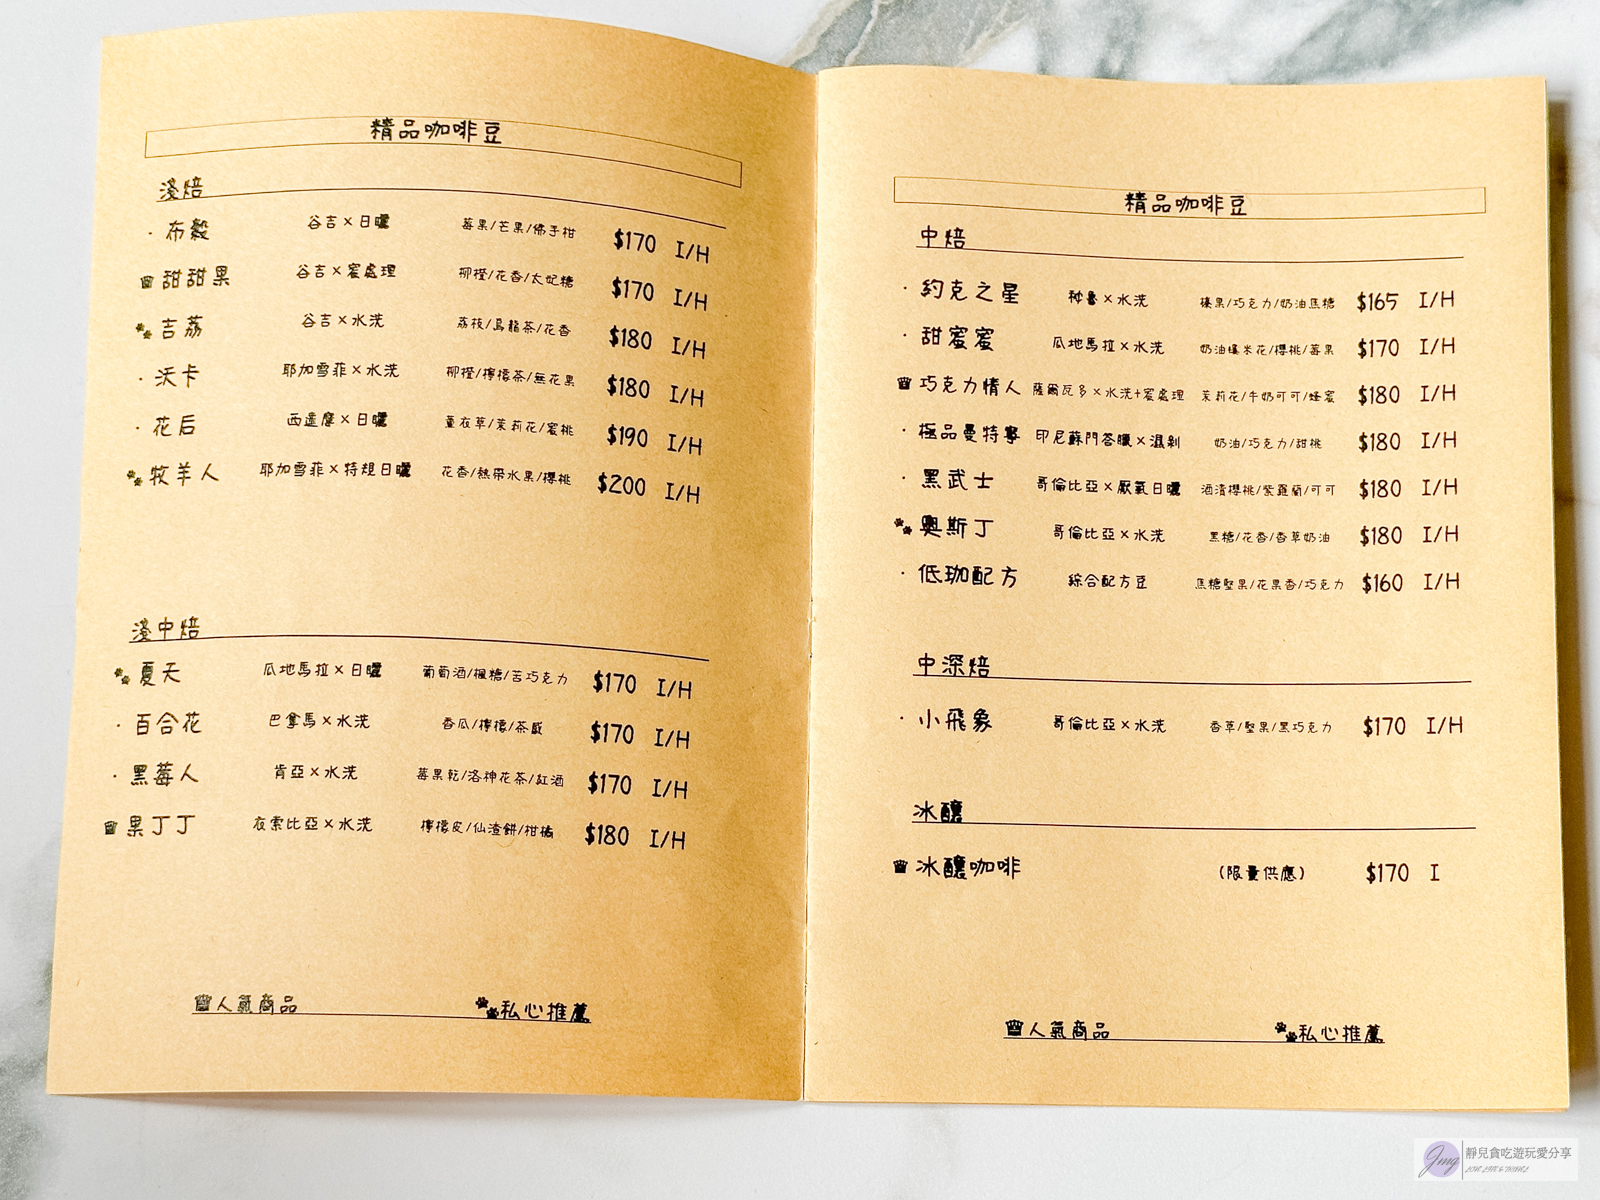 精品咖啡豆
淺焙
· 布穀 谷吉×日曬 莓果/芒果/佛手柑 $170 I/H
甜甜果 谷吉×蜜處理 柳橙/花香/太妃糖 $170 I/H
吉荔 谷吉×水洗 荔枝/烏龍茶/花香 $180 I/H
· 沃卡 耶加雪菲×水洗 柳橙/檸檬茶/無花果 $180 I/H
· 花后 西達摩×日曬 薰衣草/茉莉花/蜜桃 $190 I/H
牧羊人 耶加雪菲×特規日曬 花香/熱帶水果/櫻桃 $200 I/H
淺中焙
夏天 瓜地馬拉×日曬 葡萄酒/楓糖/苦巧克力 $170 I/H
· 百合花 巴拿馬×水洗 香瓜/檸檬/茶感 $170 I/H
· 黑莓人 肯亞×水洗 莓果乾/洛神花茶/紅酒 $170 I/H
果丁丁 衣索比亞×水洗 檸檬皮/仙渣餅/柑橘 $180 I/H
人氣商品 私心推薦
精品咖啡豆
中焙
· 約克之星 秘魯×水洗 榛果/巧克力/奶油焦糖 $165 I/H
· 甜蜜蜜 瓜地馬拉×水洗 奶油爆米花/櫻桃/莓果 $170 I/H
巧克力情人 薩爾瓦多×水洗+蜜處理 茉莉花/牛奶可可/蜂蜜 $180 I/H
· 極品曼特寧 印尼蘇門答臘×濕剝 奶油/巧克力/甜桃 $180 I/H
· 黑武士 哥倫比亞×厭氧日曬 酒漬櫻桃/紫羅蘭/可可 $180 I/H
奧斯丁 哥倫比亞×水洗 黑糖/花香/香草奶油 $180 I/H
· 低珈配方 綜合配方豆 焦糖堅果/花果香/巧克力 $160 I/H
中深焙
· 小飛象 哥倫比亞×水洗 香草/堅果/黑巧克力 $170 I/H
冰釀
冰釀咖啡 (限量供應) $170 I
人氣商品 私心推薦
Jing 靜兒貪吃遊玩愛分享